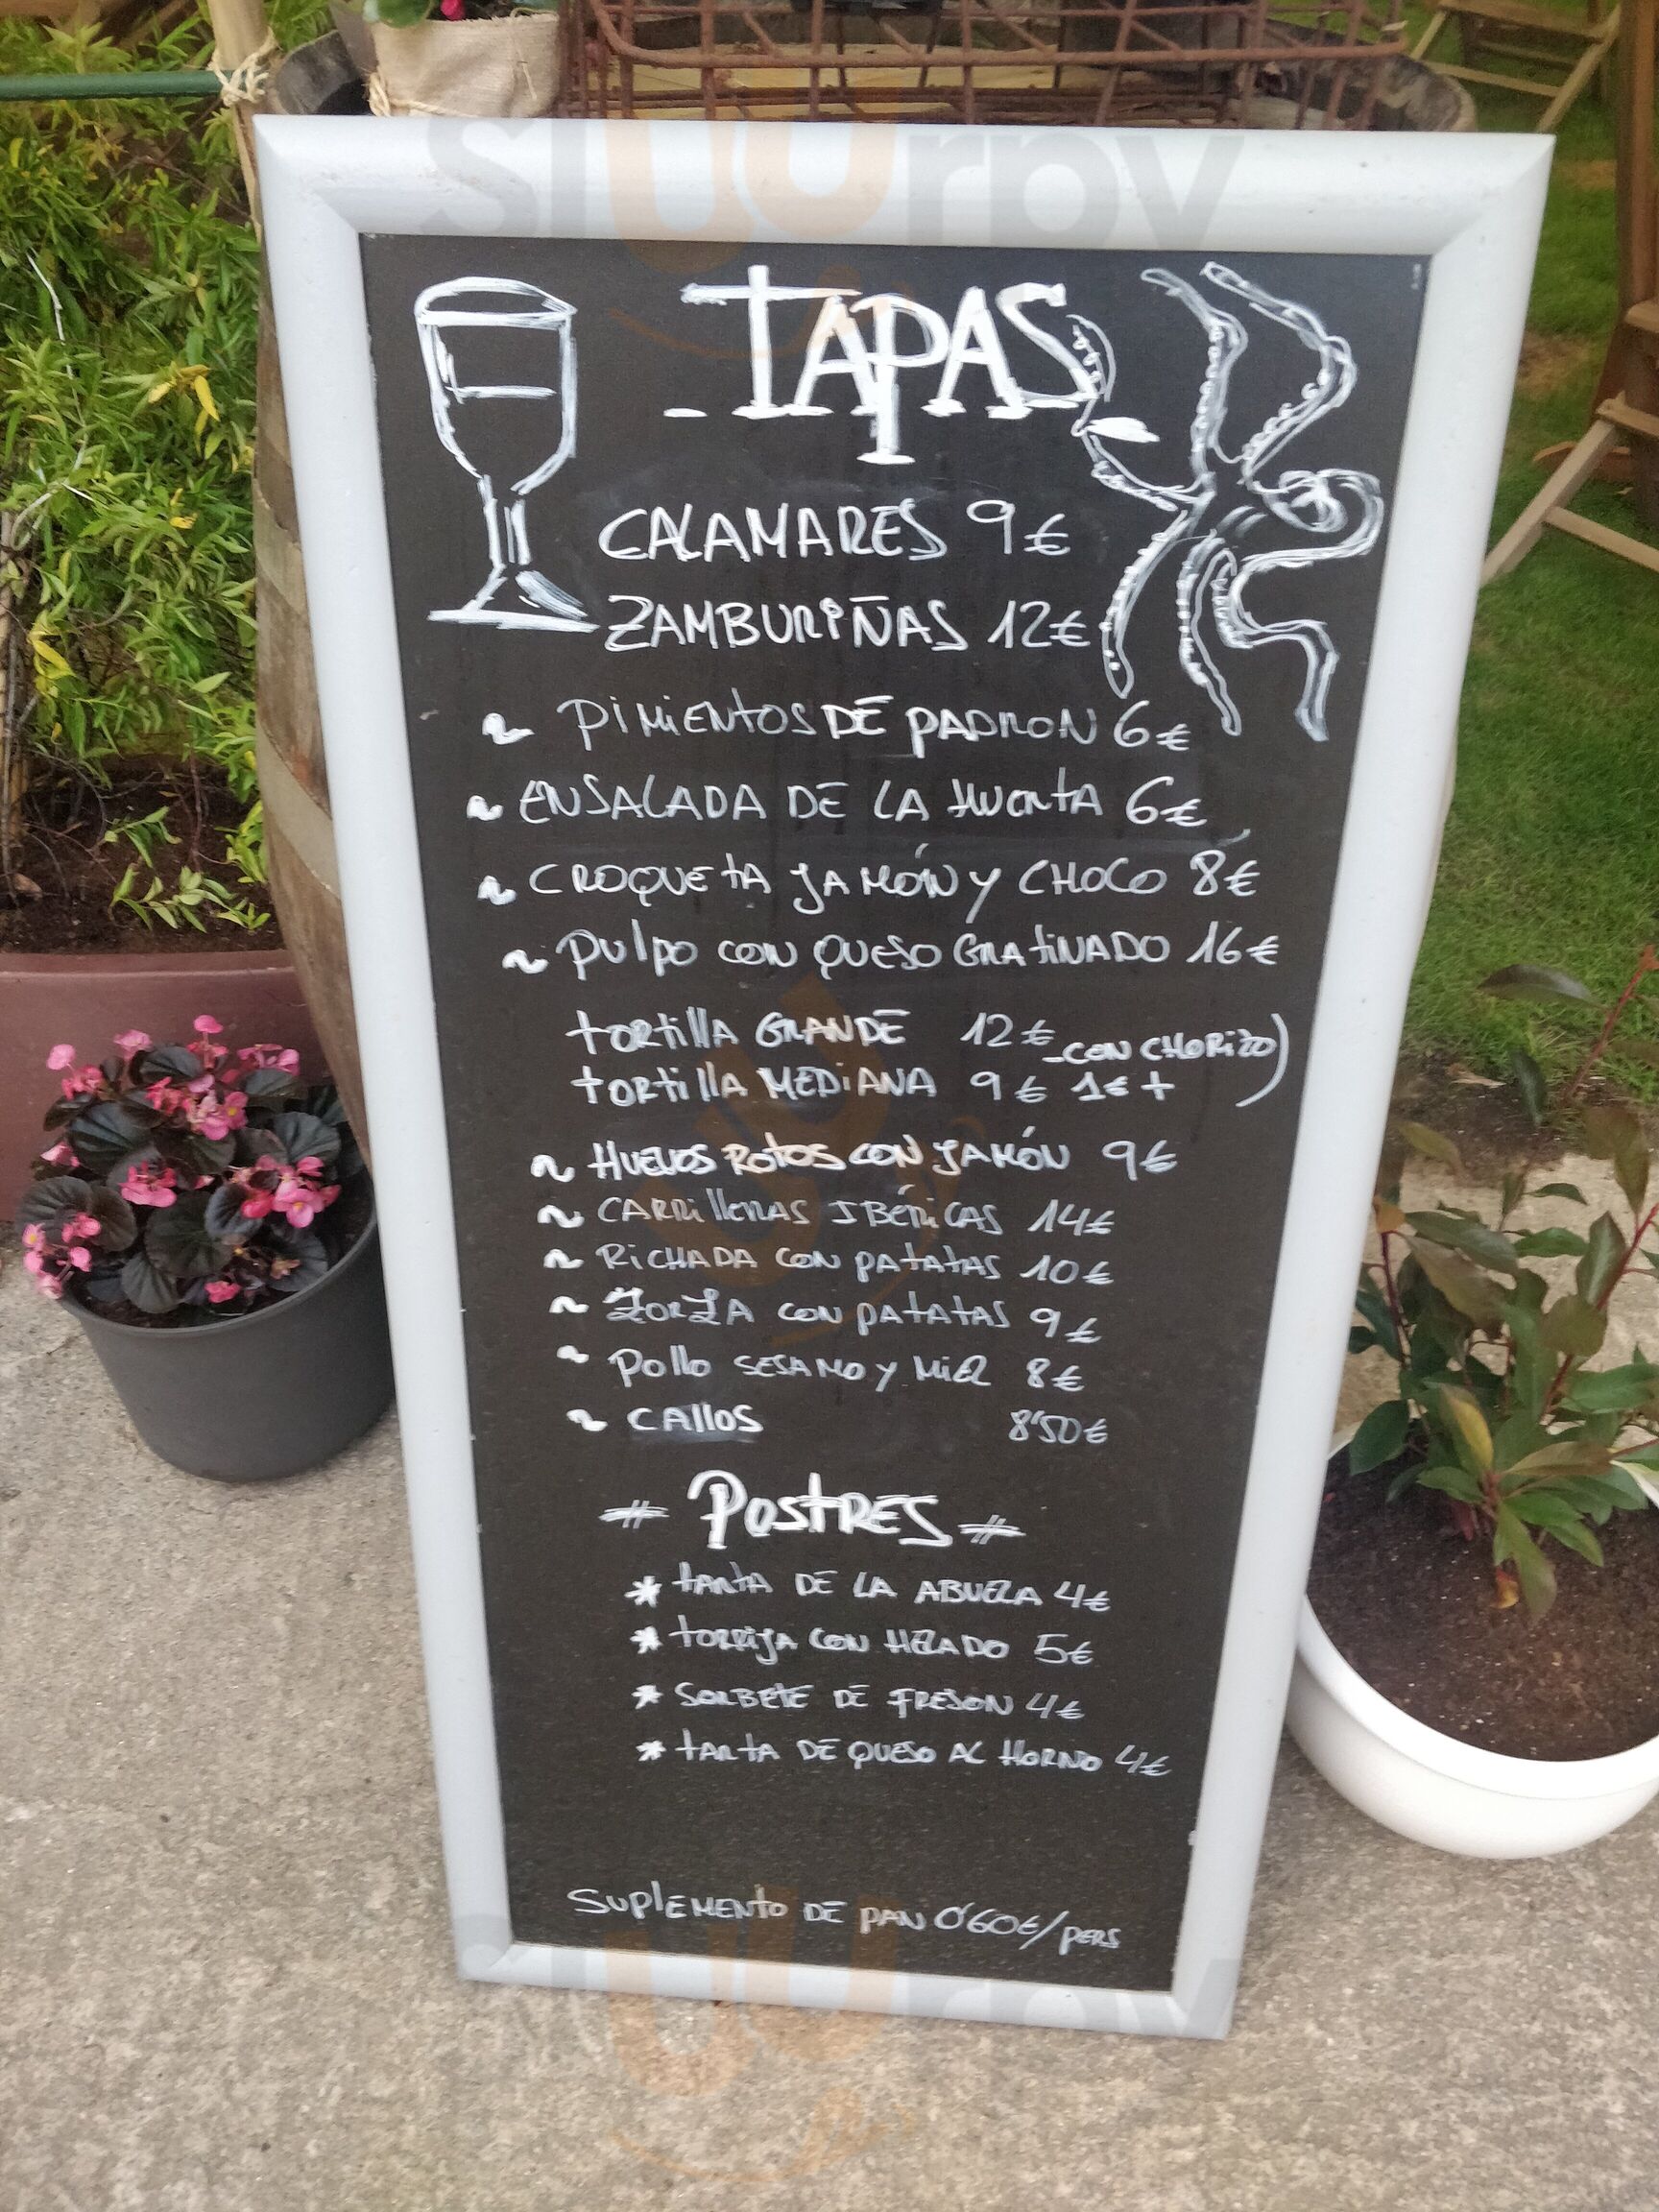 sluurpy
TAPAS
CALAMARES 9€
ZAMBURIÑAS 12€
~ PIMIENTOS DE PADRON 6€
~ ENSALADA DE LA HUERTA 6€
~ CROQUETA JAMÓN Y CHOCO 8€
~ PULPO CON QUESO GRATINADO 16€
TORTILLA GRANDE 12€ - CON CHORIZO)
TORTILLA MEDIANA 9€ 1€ +
~ HUEVOS ROTOS CON JAMÓN 9€
~ CARRILLERAS IBÉRICAS 14€
~ RICHADA CON PATATAS 10€
~ ZORZA CON PATATAS 9€
~ POLLO SESAMO Y MIEL 8€
~ CALLOS 8'50€
POSTRES
* TARTA DE LA ABUELA 4€
* TORRIJA CON HELADO 5€
* SORBETE DE FRESÓN 4€
* TARTA DE QUESO AL HORNO 4€
SUPLEMENTO DE PAN 0'60€/PERS
sluurpy